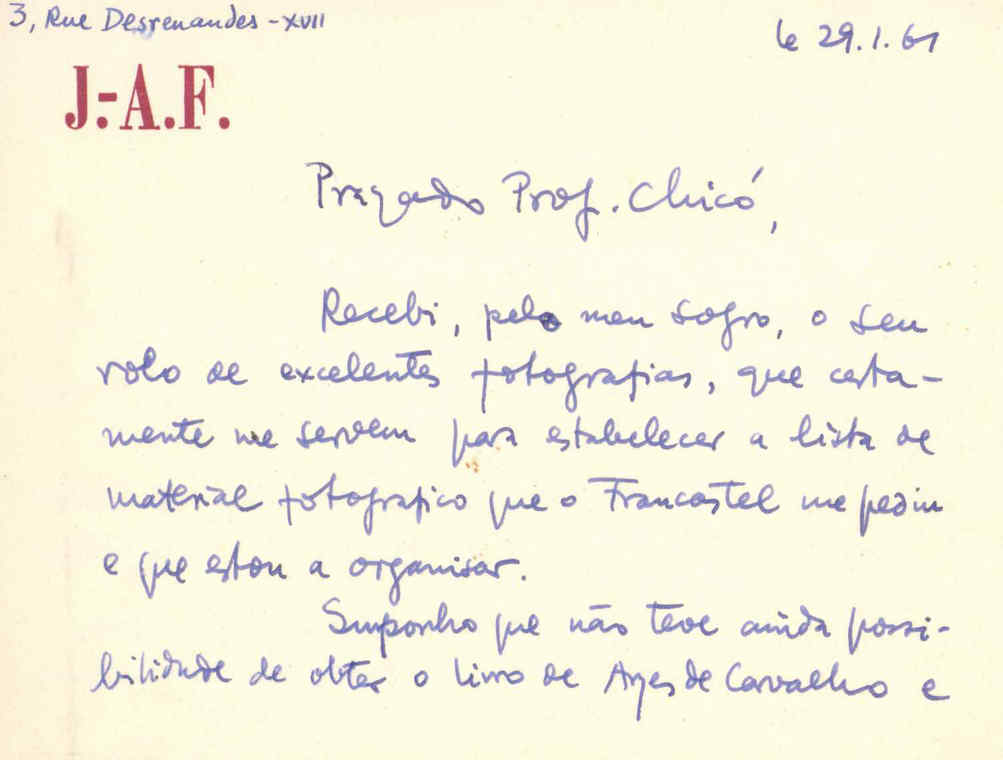 3, Rue Desrenaudes - XVII
le 29.1.61
J.-A.F.
Prezado Prof. Chicó,
Recebi, pelo meu sogro, o seu
rolo de excelentes fotografias, que certa-
mente me servem para estabelecer a lista de
material fotografico que o Francastel me pediu
e que estou a organisar.
Suponho que não teve ainda possi-
bilidade de obter o livro de Ayres de Carvalho e